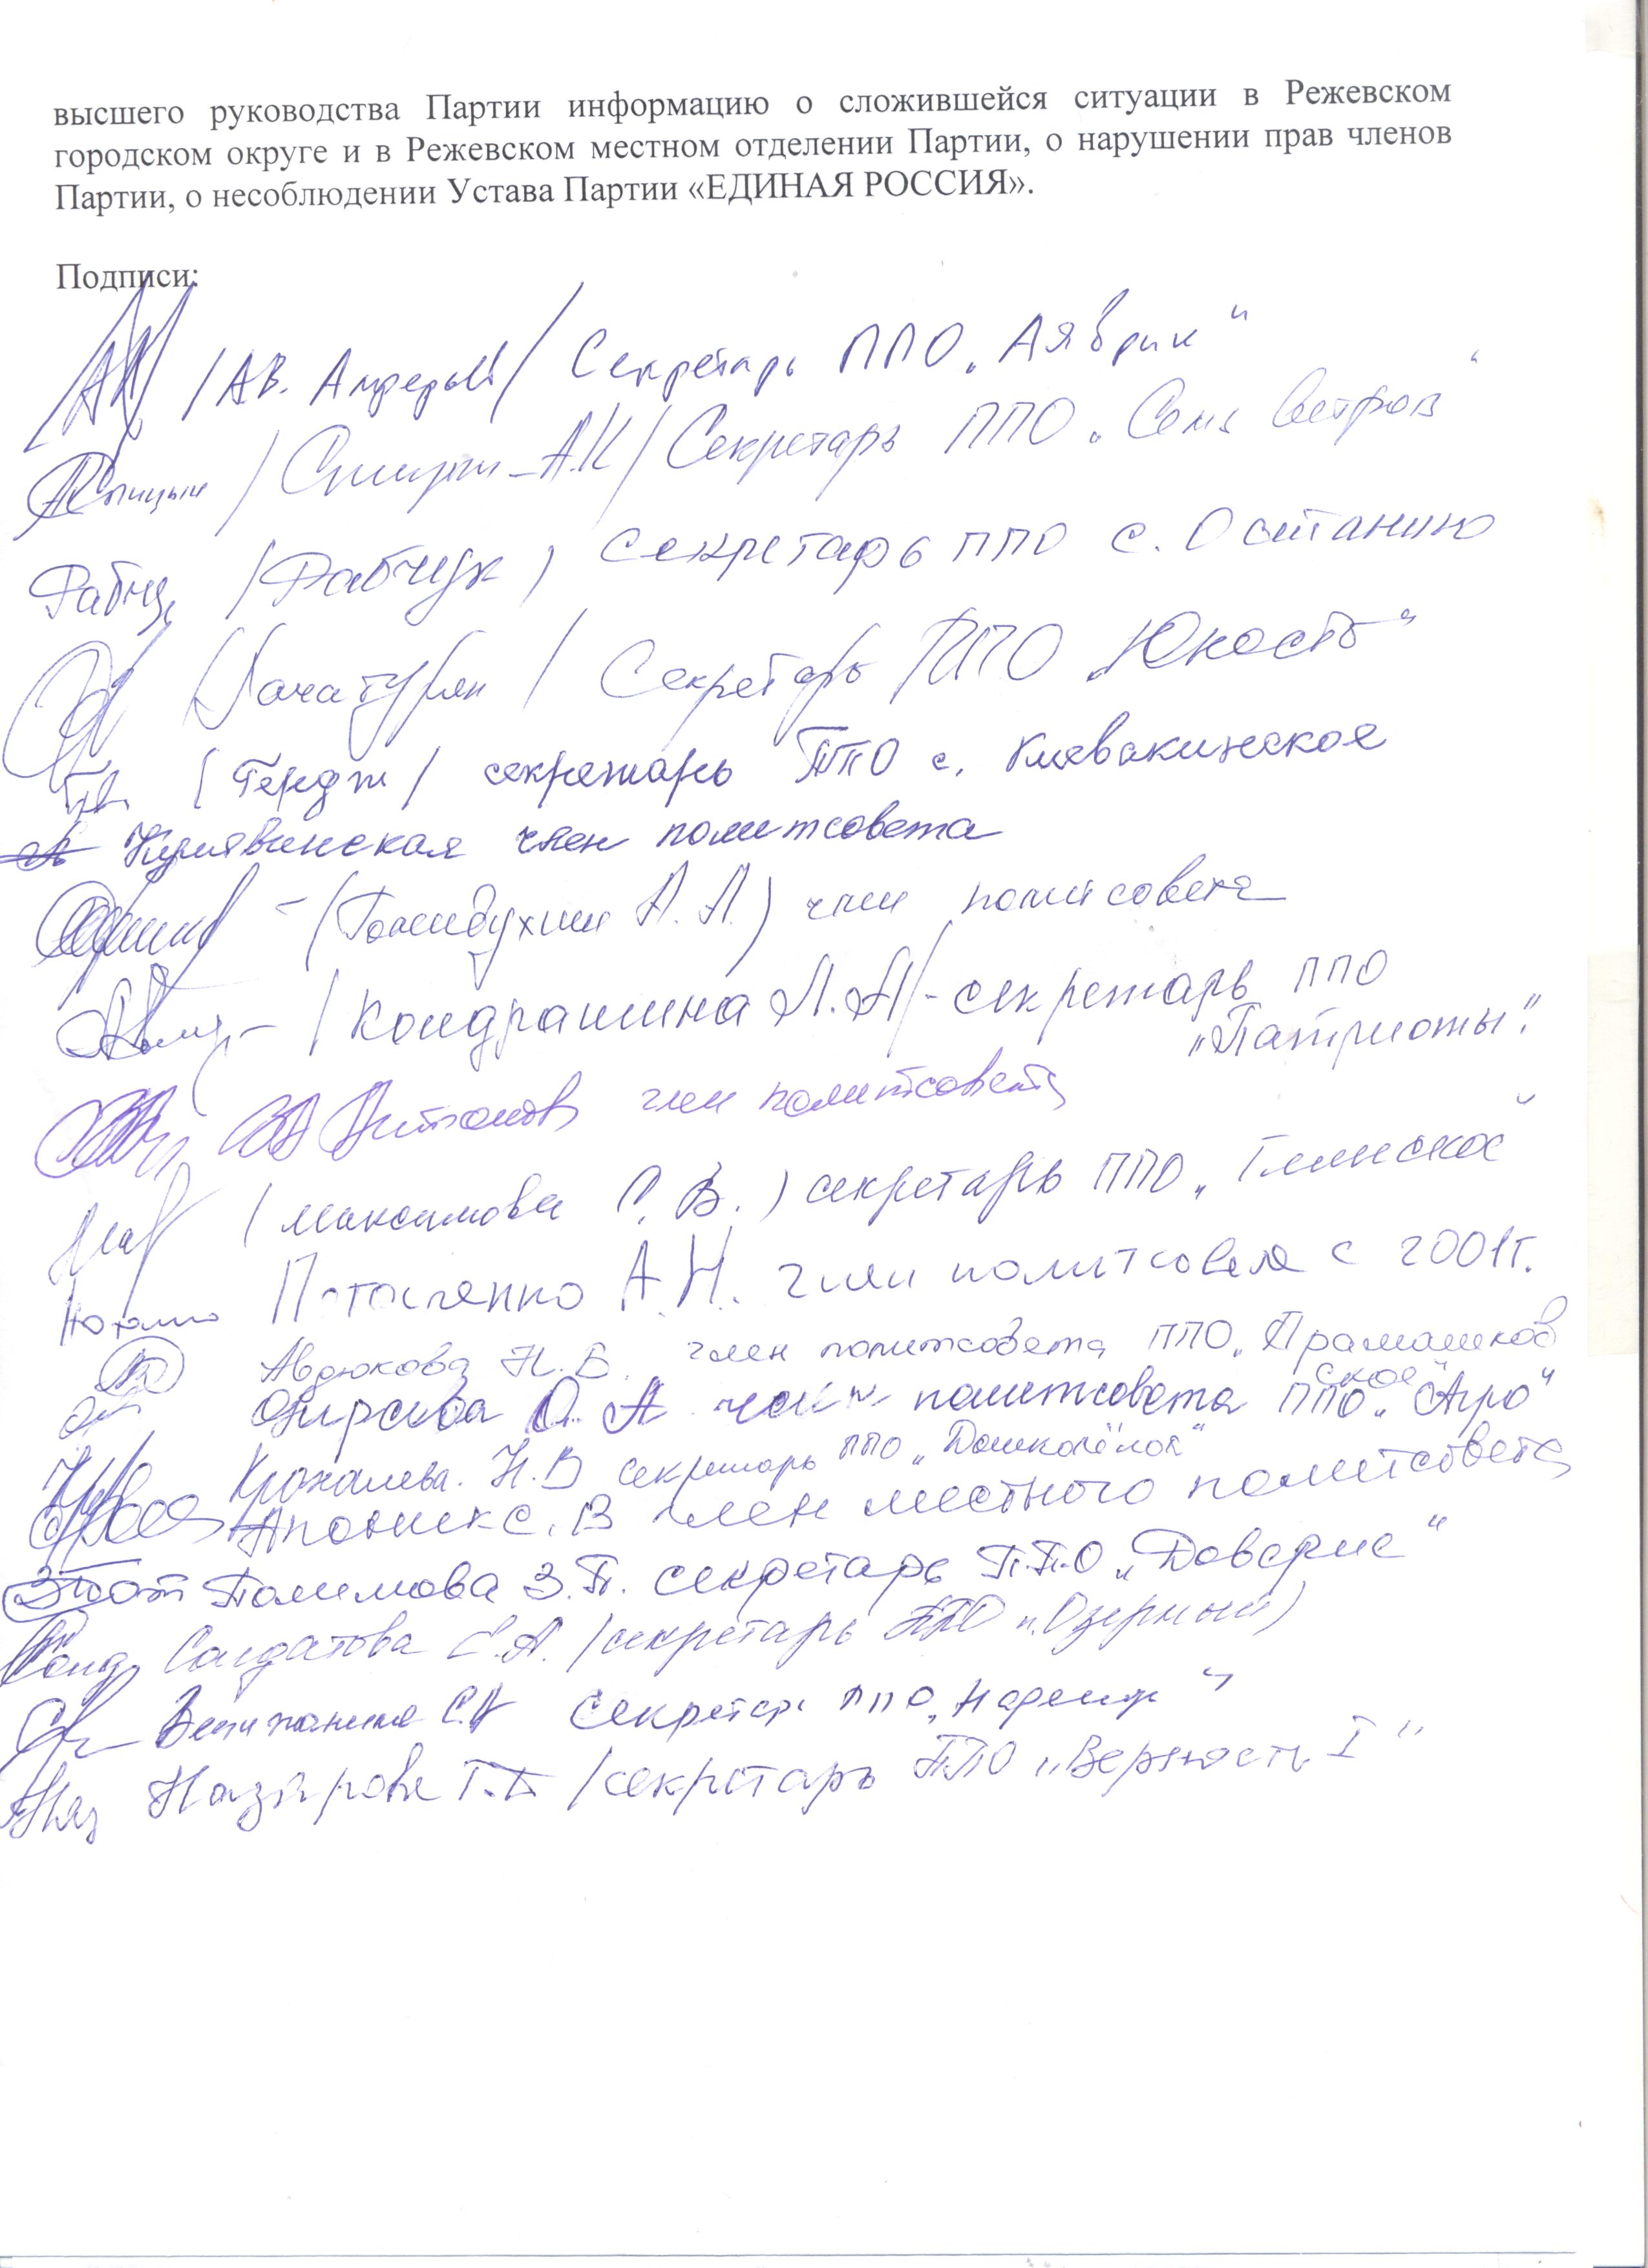 высшего руководства Партии информацию о сложившейся ситуации в Режевском
городском округе и в Режевском местном отделении Партии, о нарушении прав членов
Партии, о несоблюдении Устава Партии «ЕДИНАЯ РОССИЯ».
Подписи:
/А.В. / Секретарь ППО „
Спицын / А.К / Секретарь ППО „Семь ветров"
/Рабчук / секретарь ППО с. Останино
/Хачатурян / Секретарь ППО „Юность"
/ секретарь ППО с. Клевакинское
член политсовета
– ( А. А.) член политсовета
– /Кондрашина Л. А/ - секретарь ППО
„Патриоты".
член политсовета
(Максимова С. В.) секретарь ППО „Глинское"
А.Н. член политсовета с 2001г.
Авдюкова Н. В. член политсовета ППО „Арамашков
ское"
О. А член политсовета ППО „Агро"
Крохалева. Н. В секретарь ППО „Дошколёнок"
С. В член местного политсовета
З.П. секретарь П.П.О „Доверие"
Солдатова С.А. /секретарь ППО п.Озерный)
С.А секретарь ППО „
Назарова Т. /секретарь ППО „Верность I"